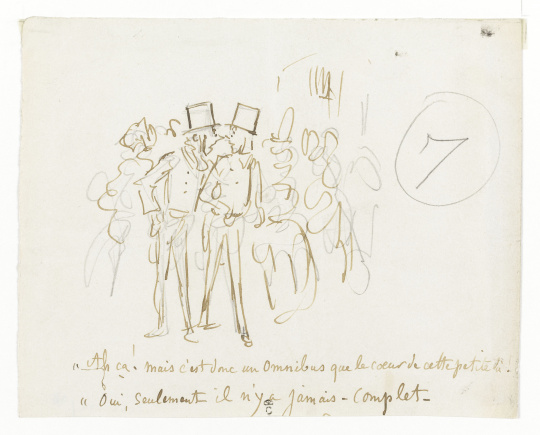 7
" Ah ça! mais c'est donc un Omnibus que le cœur de cette petite !
" Oui, seulement il n'y a jamais - Complet -